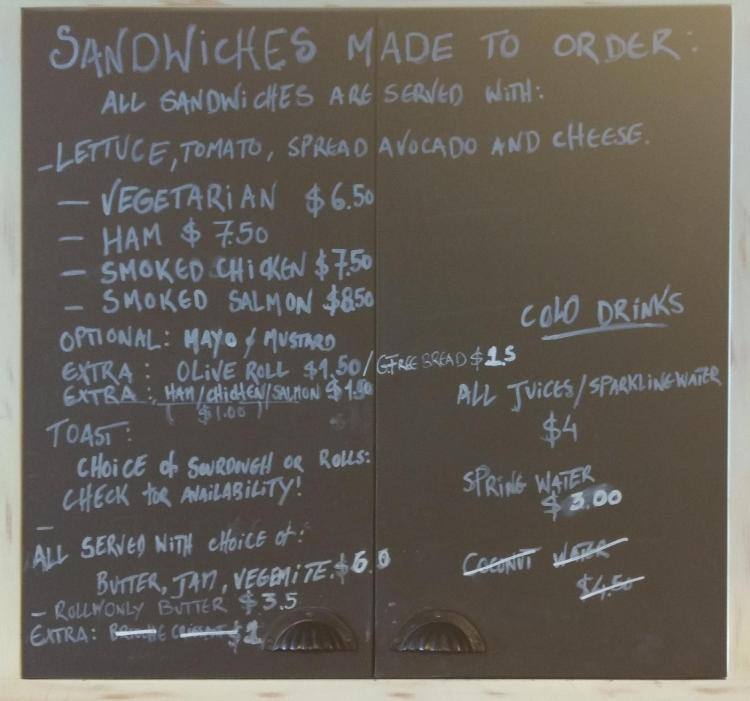 SANDWICHES MADE TO ORDER:
ALL SANDWICHES ARE SERVED WITH:
_LETTUCE, TOMATO, SPREAD AVOCADO AND CHEESE.
— VEGETARIAN $6.50
— HAM $7.50
— SMOKED CHICKEN $7.50
— SMOKED SALMON $8.50
OPTIONAL: MAYO & MUSTARD
EXTRA: OLIVE ROLL $1.50/GFREE BREAD $
EXTRA: HAM/CHICKEN/SALMON $1.50
($1.00)
TOAST:
CHOICE of SOURDOUGH OR ROLLS:
CHECK for AVAILABILITY!
—
ALL SERVED WITH CHOICE of:
BUTTER, JAM, VEGEMITE.
— ROLL ONLY BUTTER $3.5
EXTRA:
COLD DRINKS
ALL JUICES/SPARKLING WATER
$4
SPRING WATER
$3.00
COCONUT WATER
$4.50